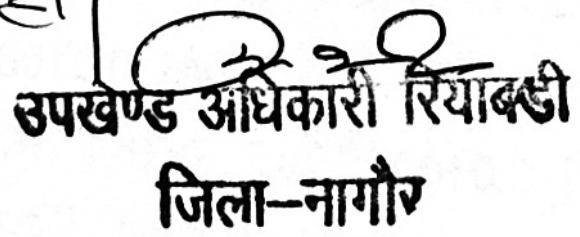 उपखण्ड अधिकारी रियाबडी
जिला-नागौर